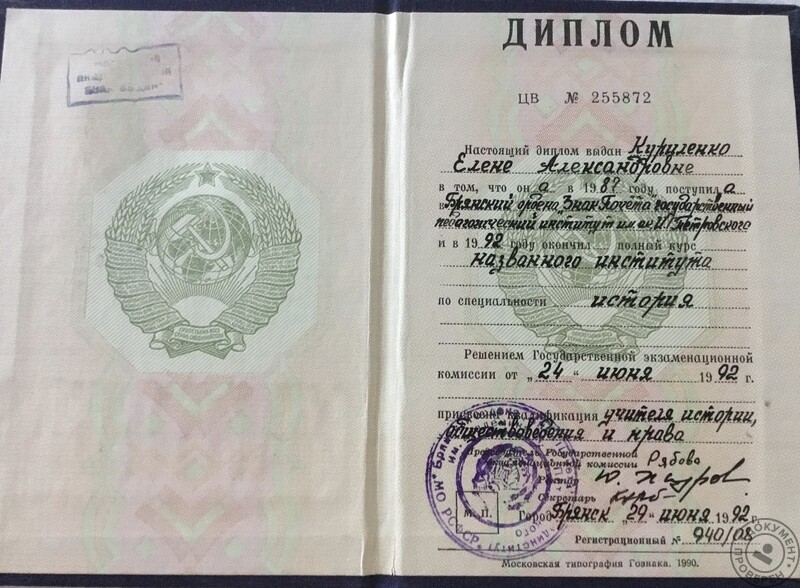 ДИПЛОМ
ЦВ № 255872
Настоящий диплом выдан Куруленко
Елене Александровне
в том, что она в 1987 году поступила
в Брянский ордена „Знак Почёта" государственный
педагогический институт им. ак. И.Г. Петровского
и в 1992 году окончил полный курс
названного института
по специальности история
Решением Государственной экзаменационной
комиссии от „24" июня 1992 г.
присвоена квалификация учителя истории,
обществоведения и права
Председатель Государственной
экзаменационной комиссии Рябова
Ректор
Секретарь
М. П. Город Брянск „29" июня 1992 г.
Регистрационный № 940/08
Московская типография Гознака. 1990.
РСФСР
ДОКУМЕНТ ПРОВЕРЕН